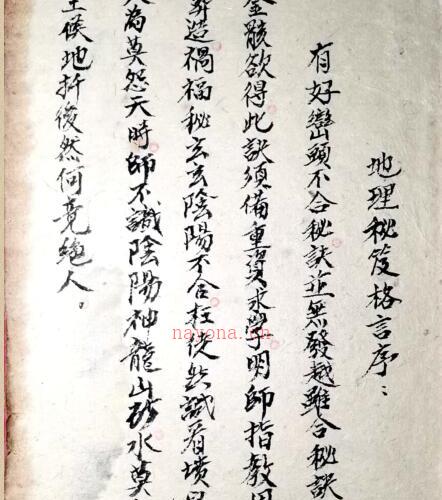 地理秘笈格言序：
有好巒頭不合秘訣並無發越雖合秘訣
金骸欲得此訣須備重資求學明師指教
葬造禍福秘玄玄陰陽不合枉從然識看墳
人為莫怨天時師不識陰陽神龍山砂水莫
王侯地折後然何竟絕人。
nayona.cn